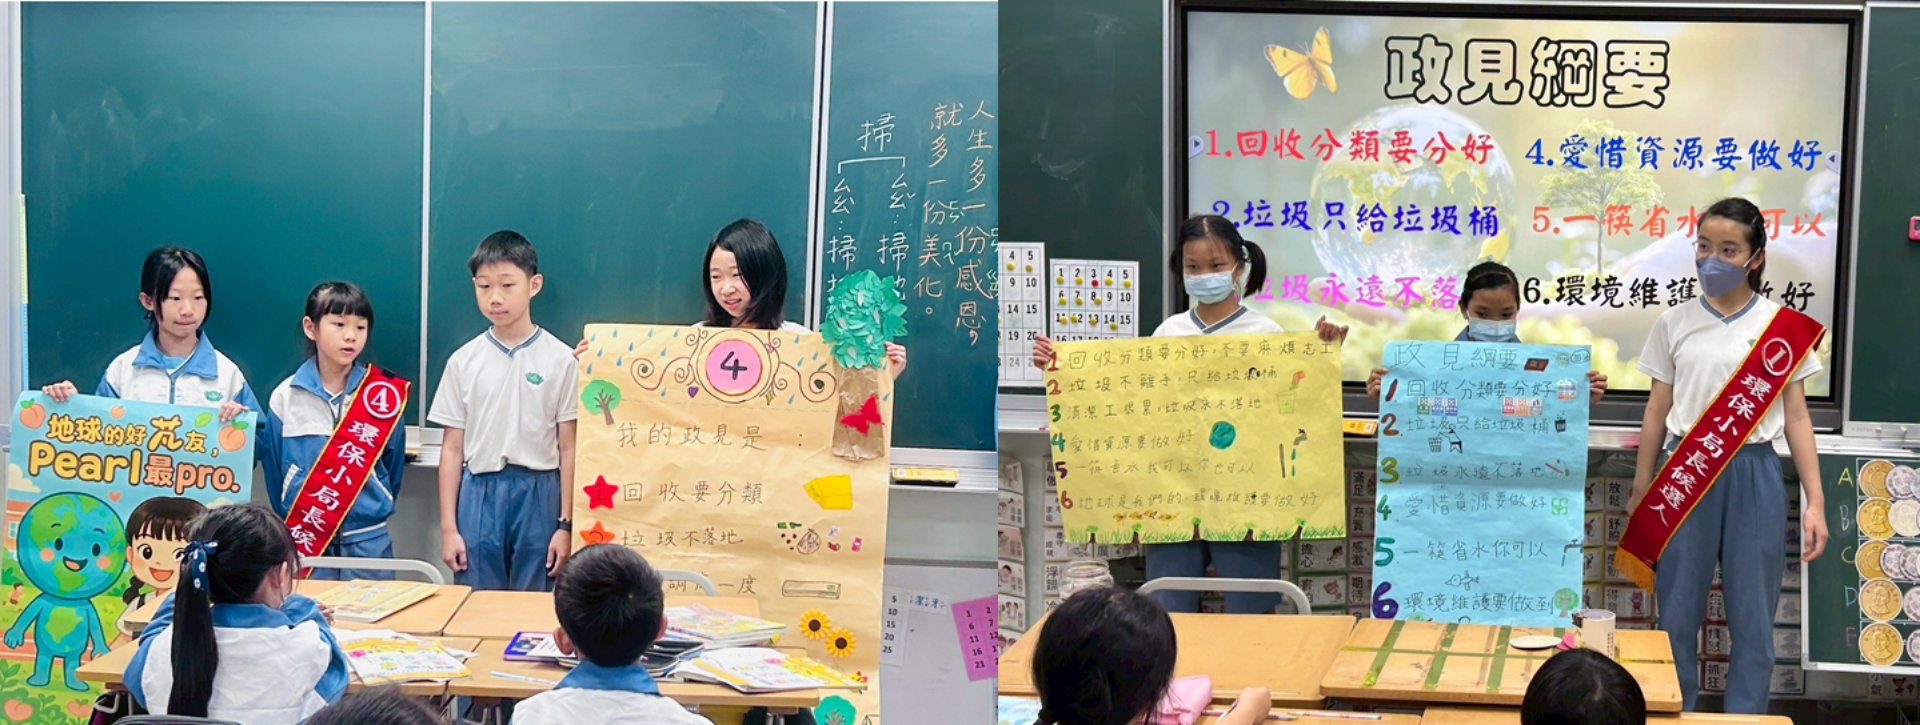 人生多一份感恩，
就多一份美化。
掃
ㄙㄠˇ：掃地
ㄙㄠˋ：掃
地球的好芃友，
Pearl最pro.
④環保小局長候
4
我的政見是：
1回收要分類
2垃圾不落地
一度
政見綱要
1.回收分類要分好
2.垃圾只給垃圾桶
垃圾永遠不落
4.愛惜資源要做好
5.一筷省水 可以
6.環境維護 做好
1回收分類要分好，不要麻煩志工
2垃圾不離手，只給垃圾桶
3清潔工很累，垃圾永不落地
4愛惜資源要做好
5一筷省水我可以你也可以
6地球是我們的，環境維護要做好
政見綱要
1回收分類要分好
2垃圾只給垃圾桶
3垃圾永遠不落地
4愛惜資源要做好
5一筷省水你可以
6環境維護要做到
①環保小局長候選人
A
B
C
D
E